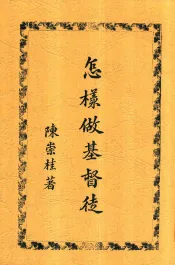 怎樣做基督徒
陳崇桂著